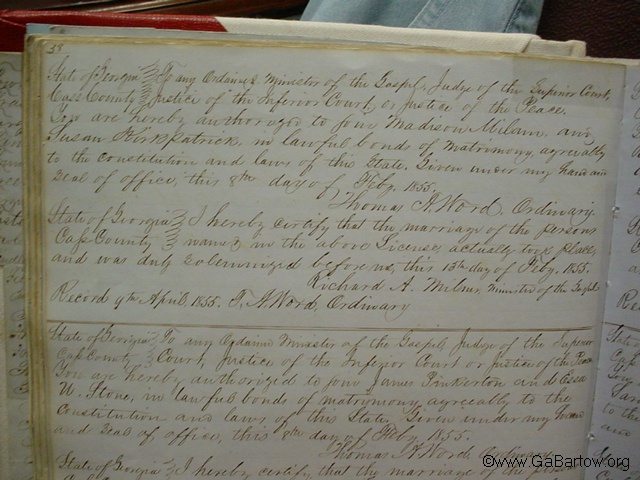 38
State of Georgia To any Ordained Minister of the Gospel, Judge of the Superior Court,
Cass County Justice of the Inferior Court, or justice of the Peace.
You are hereby authorized to join Madison Milam, and
Susan Kirkpatrick, in lawful bonds of matrimony, agreeally
to the constitution and laws of this State. Given under my hand and
seal of office, this 8th day of Feby. 1855.
Thomas A. Word, Ordinary.
State of Georgia I hereby certify that the marriage of the persons
Cass County named in the above License, actually took place,
and was duly solemnized before me, this 15th day of Feby. 1855.
Richard A. Milner, Minister of the Gospel
Record 9th April, 1855. T. A. Word, Ordinary
State of Georgia To any Ordained Minister of the Gospel, Judge of the Superior
Cass County Court, Justice of the Inferior Court or Justice of the Peace
You are hereby authorized to join James Pinkerton and
W. Stone, in lawful bonds of matrimony, agreeally to the
constitution and laws of this State, Given under my hand
and seal of office, this 8th day of Feby. 1855.
Thomas A Word,
State of Georgia I hereby certify that the marriage of the persons
©www.GaBartow.org